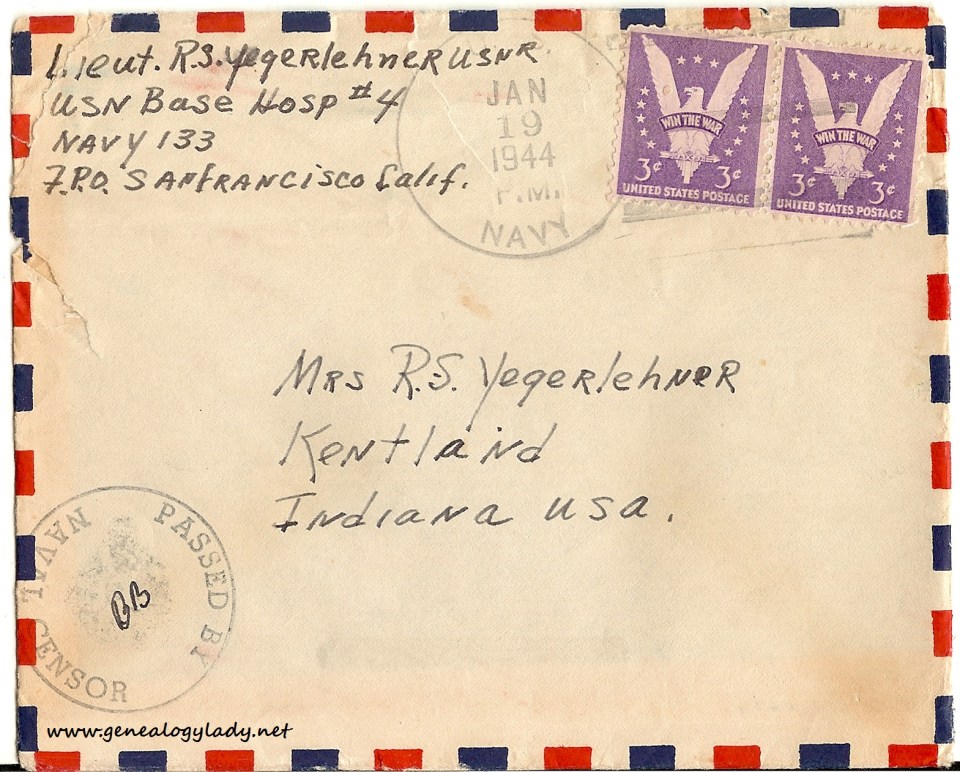 Lieut. R.S. Yegerlehner USNR.
USN Base Hosp #4
NAVY 133
F.P.O. SANFRANCISCO Calif.
JAN
19
1944
P.M.
NAVY
WIN THE WAR
3¢ 3¢
UNITED STATES POSTAGE
WIN THE WAR
3¢ 3¢
UNITED STATES POSTAGE
Mrs R.S. Yegerlehner
Kentland
Indiana USA.
PASSED BY
NAVAL CENSOR
BB
www.genealogylady.net